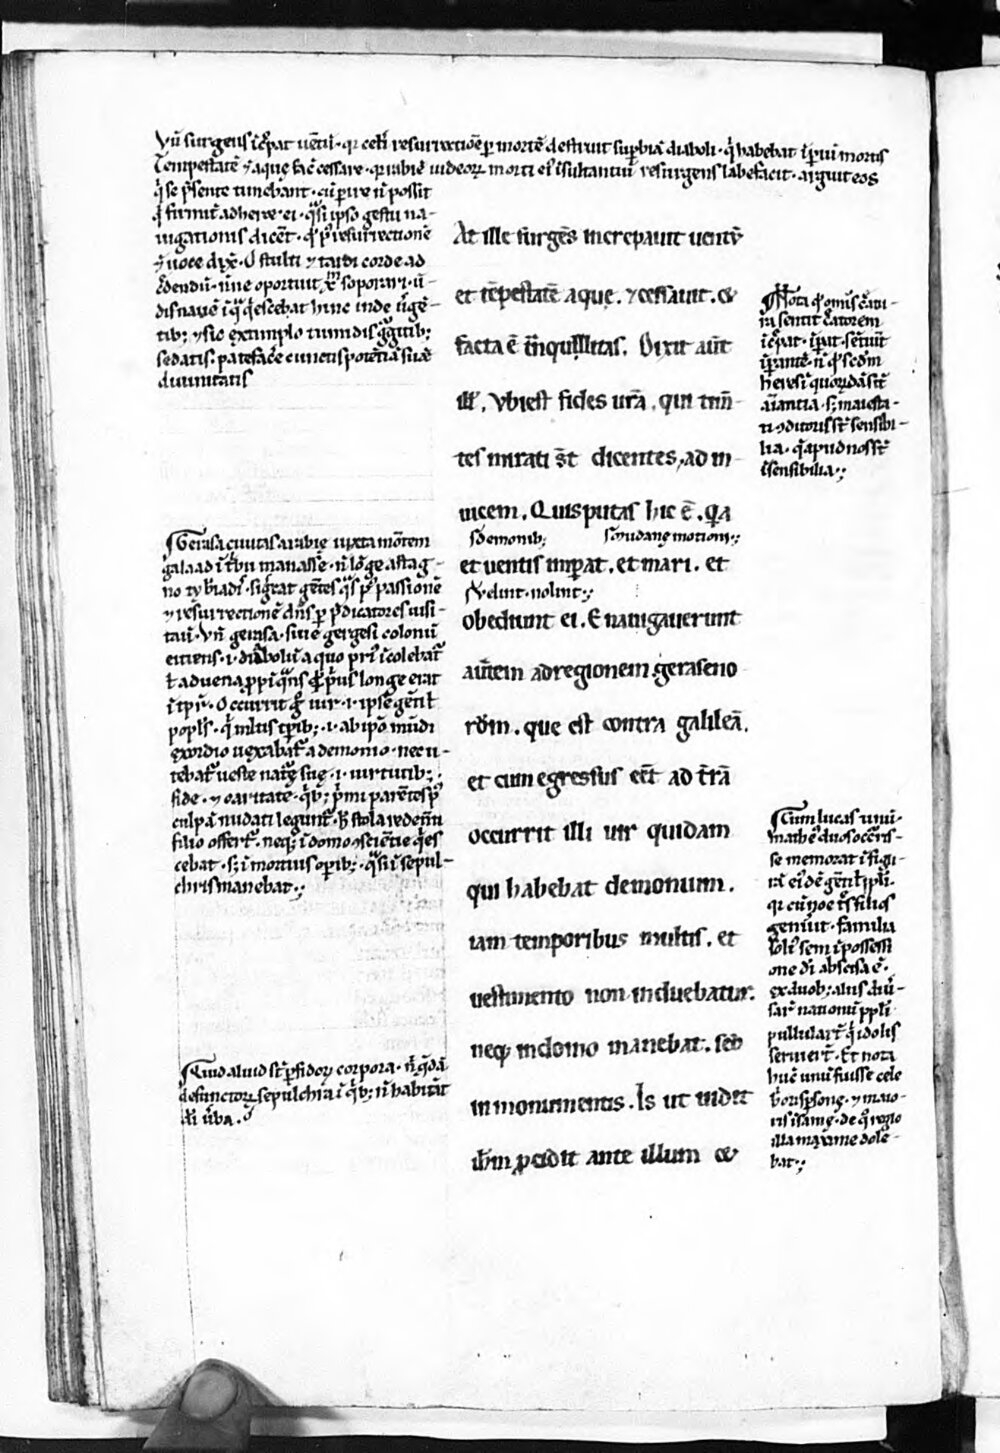 Vn̄ surgens īc̄pat uētū· qr celi resurrectiōe ꝑ mortē destruit suꝑbiā diaboli· q̄ habebat īꝑiū mortis
Tempestatē ⁊ aquę fac̄ cessare· rabiē iudeoꝝ morti eī īsultantiū resurgens labefacit· arguit eos
q̄ se p̄sente timebant· cū ꝑire n̄ possit
q̄ firmit̄ adhere ei· q̄si ipso gestu na-
uigationis dicēt· q̄ p̄ resurrectionē
⁊ uoce dix̄· O stulti ⁊ tardi corde ad
c̄dendū· n̄ne oportuit xp̄m soporari·
disnauē ī q̄ q̄escebat hinc inde ūgē-
tib; ⁊ sic extimplo tumidis gurgitib;
sedatis· patefac̄e cunctis potētiā suę
diuinitatis
At ille surgēs increpauit uentū
et tēpestatē aque. ⁊ cessauit. &
facta ē t̄nquillitas. Dixit aūt
ill'. Vbi est fides ur̄a. qui tim̄-
tes mirati s̄t dicentes, ad in-
uicem. Quis putas hic ē. q̄a
s̄ demonib; s̄ mūdanę motioni·;
et uentis imꝑat. et mari. et
s̄ uelint· nolint·;
obediunt ei. Enauigauerunt
aūtem ad regionem geraseno
rōm. que est contra galileā.
et cum egressus eēt ad t̄rā
occurrit illi uir quidam
qui habebat demonium.
iam temporibus multis. et
uestimento non induebatur.
neq; in domo manebat. sed
in monumentis. Is ut uidit
ih̄m ꝓcidit ante illum &
Nota q̄ om̄is c̄atu-
ra sentit c̄atorem
īc̄pat· īꝑat· sētiunt
īꝑantē· n̄ q̄ scd̄m
heresī quorūdā sīt
aīantia· s; maiesta-
ti ꝯditoris s̄t sensibi-
lia· q̄ apud nos s̄t
īsensibilia·;
Gerasa ciuitas arabię iuxta mōtem
galaad ī t̄bu manasse· n̄ lōge a stag-
no tyb̄iadis· sig̅cat gētes q̄s p̄ passionē
⁊ resurrectionē dn̄s ꝑ p̄dicatores uisi-
tauit· Vn̄ gerasa· siue gergesi colonū
eitiens· i· diabolū a quo pri' īcolebat̄
ł aduena ꝓpīq̄ns q̄ p̄us longe erat
ī tp̄r̄· Occurrit g̊ uir· i· ipse gētił
popl's· q̄ mltis tp̄rib;· i· ab ipo mūdi
exordio uexabat̄ a demonio· nec u-
tebat̄ ueste natę suę· i· uirtutib;·
fide· ⁊ caritate· q̄b; p̄mi parētes p̄
culpā nudati legunt̄· h̄ stola redeūti
filio offert̄· neq; ī domo ꝯscientię q̄es
cebat· s; ī mortuis oꝑib;· q̄si ī sepul-
chris manebat·;
Cum lucas unū·
math's duos occ̄ris-
se memorat ī figu-
rā eidē gētił' ppl'i·
qr cū noe t̄s filios
genūit· familia
soli' sem ī possessi
one dī abscisa ē·
ex duob; aliis diū-
sar̄ nationū ppl'i
pullular̄t q̄ idolis
seruier̄t· Et nota
hūc unū fuisse cele
b̄oris ꝑsonę· ⁊ maio-
ris īsanię· de q̊ regio
illa maxime dole-
bat·;
Quid aliud s̄t ꝑfidoꝝ corpora· n̄ q̄dā
defunctoꝝ sepulchra ī q̄b; n̄ habitāt
dī ūba.